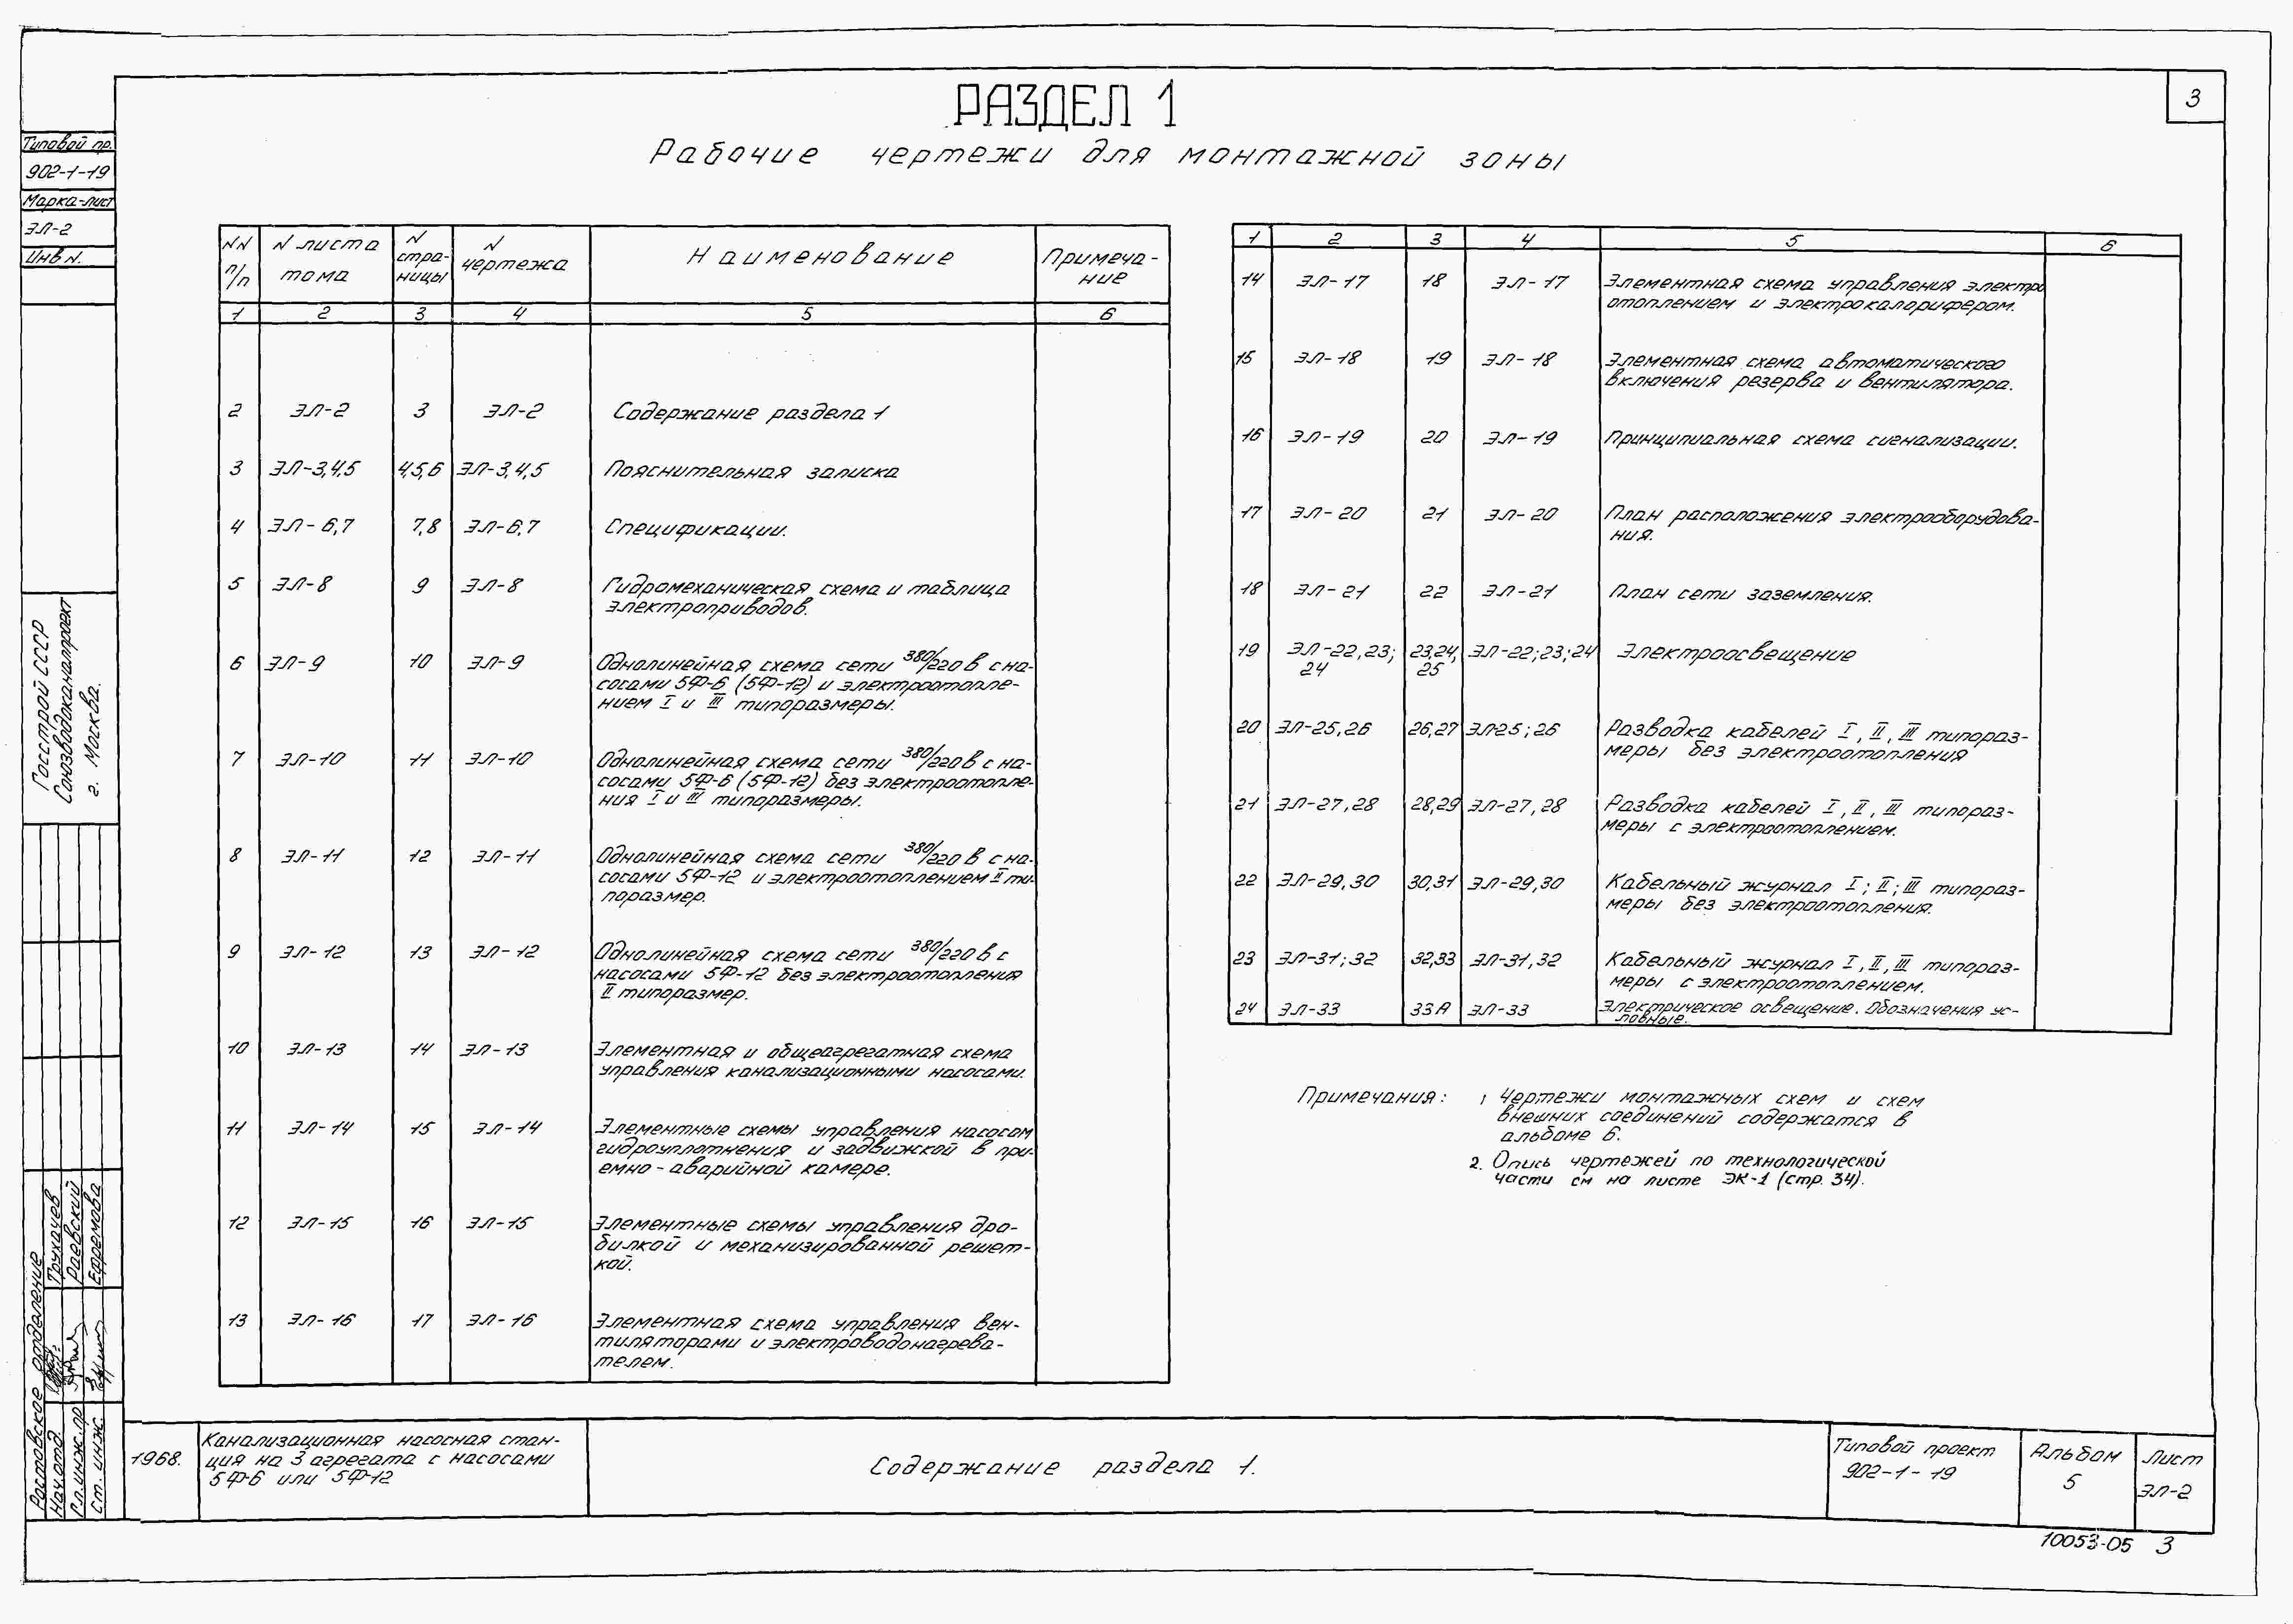 3
РАЗДЕЛ 1
Рабочие чертежи для монтажной зоны
Типовой пр.
902-1-19
Марка-лист
ЭЛ-2
Инв N.
Госстрой СССР
Союзводоканалпроект
г. Москва.
Ростовское отделение
Нач.отд. Трухачев
Гл.инж.пр Раевский
Ст. инж. Ефремова
NN п/п | N листа тома | N стра-ницы | N чертежа | Наименование | Примеча-ние
1 2 3 4 5 6
2 ЭЛ-2 3 ЭЛ-2 Содержание раздела 1
3 ЭЛ-3,4,5 4,5,6 ЭЛ-3,4,5 Пояснительная записка
4 ЭЛ-6,7 7,8 ЭЛ-6,7 Спецификации.
5 ЭЛ-8 9 ЭЛ-8 Гидромеханическая схема и таблица
электроприводов.
6 ЭЛ-9 10 ЭЛ-9 Однолинейная схема сети 380/220 в с на-
сосами 5Ф-6 (5Ф-12) и электроотопле-
нием I и III типоразмеры.
7 ЭЛ-10 11 ЭЛ-10 Однолинейная схема сети 380/220 в с на-
сосами 5Ф-6 (5Ф-12) без электроотопле-
ния I и III типоразмеры.
8 ЭЛ-11 12 ЭЛ-11 Однолинейная схема сети 380/220 в с на-
сосами 5Ф-12 и электроотоплением II ти-
поразмер.
9 ЭЛ-12 13 ЭЛ-12 Однолинейная схема сети 380/220 в с
насосами 5Ф-12 без электроотопления
II типоразмер.
10 ЭЛ-13 14 ЭЛ-13 Элементная и общеагрегатная схема
управления канализационными насосами.
11 ЭЛ-14 15 ЭЛ-14 Элементные схемы управления насосом
гидроуплотнения и задвижкой в при-
емно-аварийной камере.
12 ЭЛ-15 16 ЭЛ-15 Элементные схемы управления дро-
билкой и механизированной решет-
кой.
13 ЭЛ-16 17 ЭЛ-16 Элементная схема управления вен-
тиляторами и электроводонагрева-
телем.
1 2 3 4 5 6
14 ЭЛ-17 18 ЭЛ-17 Элементная схема управления электро
отоплением и электрокалорифером.
15 ЭЛ-18 19 ЭЛ-18 Элементная схема автоматического
включения резерва и вентилятора.
16 ЭЛ-19 20 ЭЛ-19 Принципиальная схема сигнализации.
17 ЭЛ-20 21 ЭЛ-20 План расположения электрооборудова-
ния.
18 ЭЛ-21 22 ЭЛ-21 План сети заземления.
19 ЭЛ-22,23; 23,24, ЭЛ-22;23;24 Электроосвещение
24 25
20 ЭЛ-25,26 26,27 ЭЛ25;26 Разводка кабелей I, II, III типораз-
меры без электроотопления
21 ЭЛ-27,28 28,29 ЭЛ-27,28 Разводка кабелей I, II, III типораз-
меры с электроотоплением.
22 ЭЛ-29,30 30,31 ЭЛ-29,30 Кабельный журнал I; II; III типораз-
меры без электроотопления.
23 ЭЛ-31;32 32,33 ЭЛ-31,32 Кабельный журнал I, II, III типораз-
меры с электроотоплением.
24 ЭЛ-33 33А ЭЛ-33 Электрическое освещение. Обозначения ус-
ловные.
Примечания: 1 Чертежи монтажных схем и схем
внешних соединений содержатся в
альбоме 6.
2. Опись чертежей по технологической
части см на листе ЭК-1 (стр. 34).
1968.
Канализационная насосная стан-
ция на 3 агрегата с насосами
5Ф-6 или 5Ф-12
Содержание раздела 1.
Типовой проект
902-1-19
Альбом
5
Лист
ЭЛ-2
10053-05 3